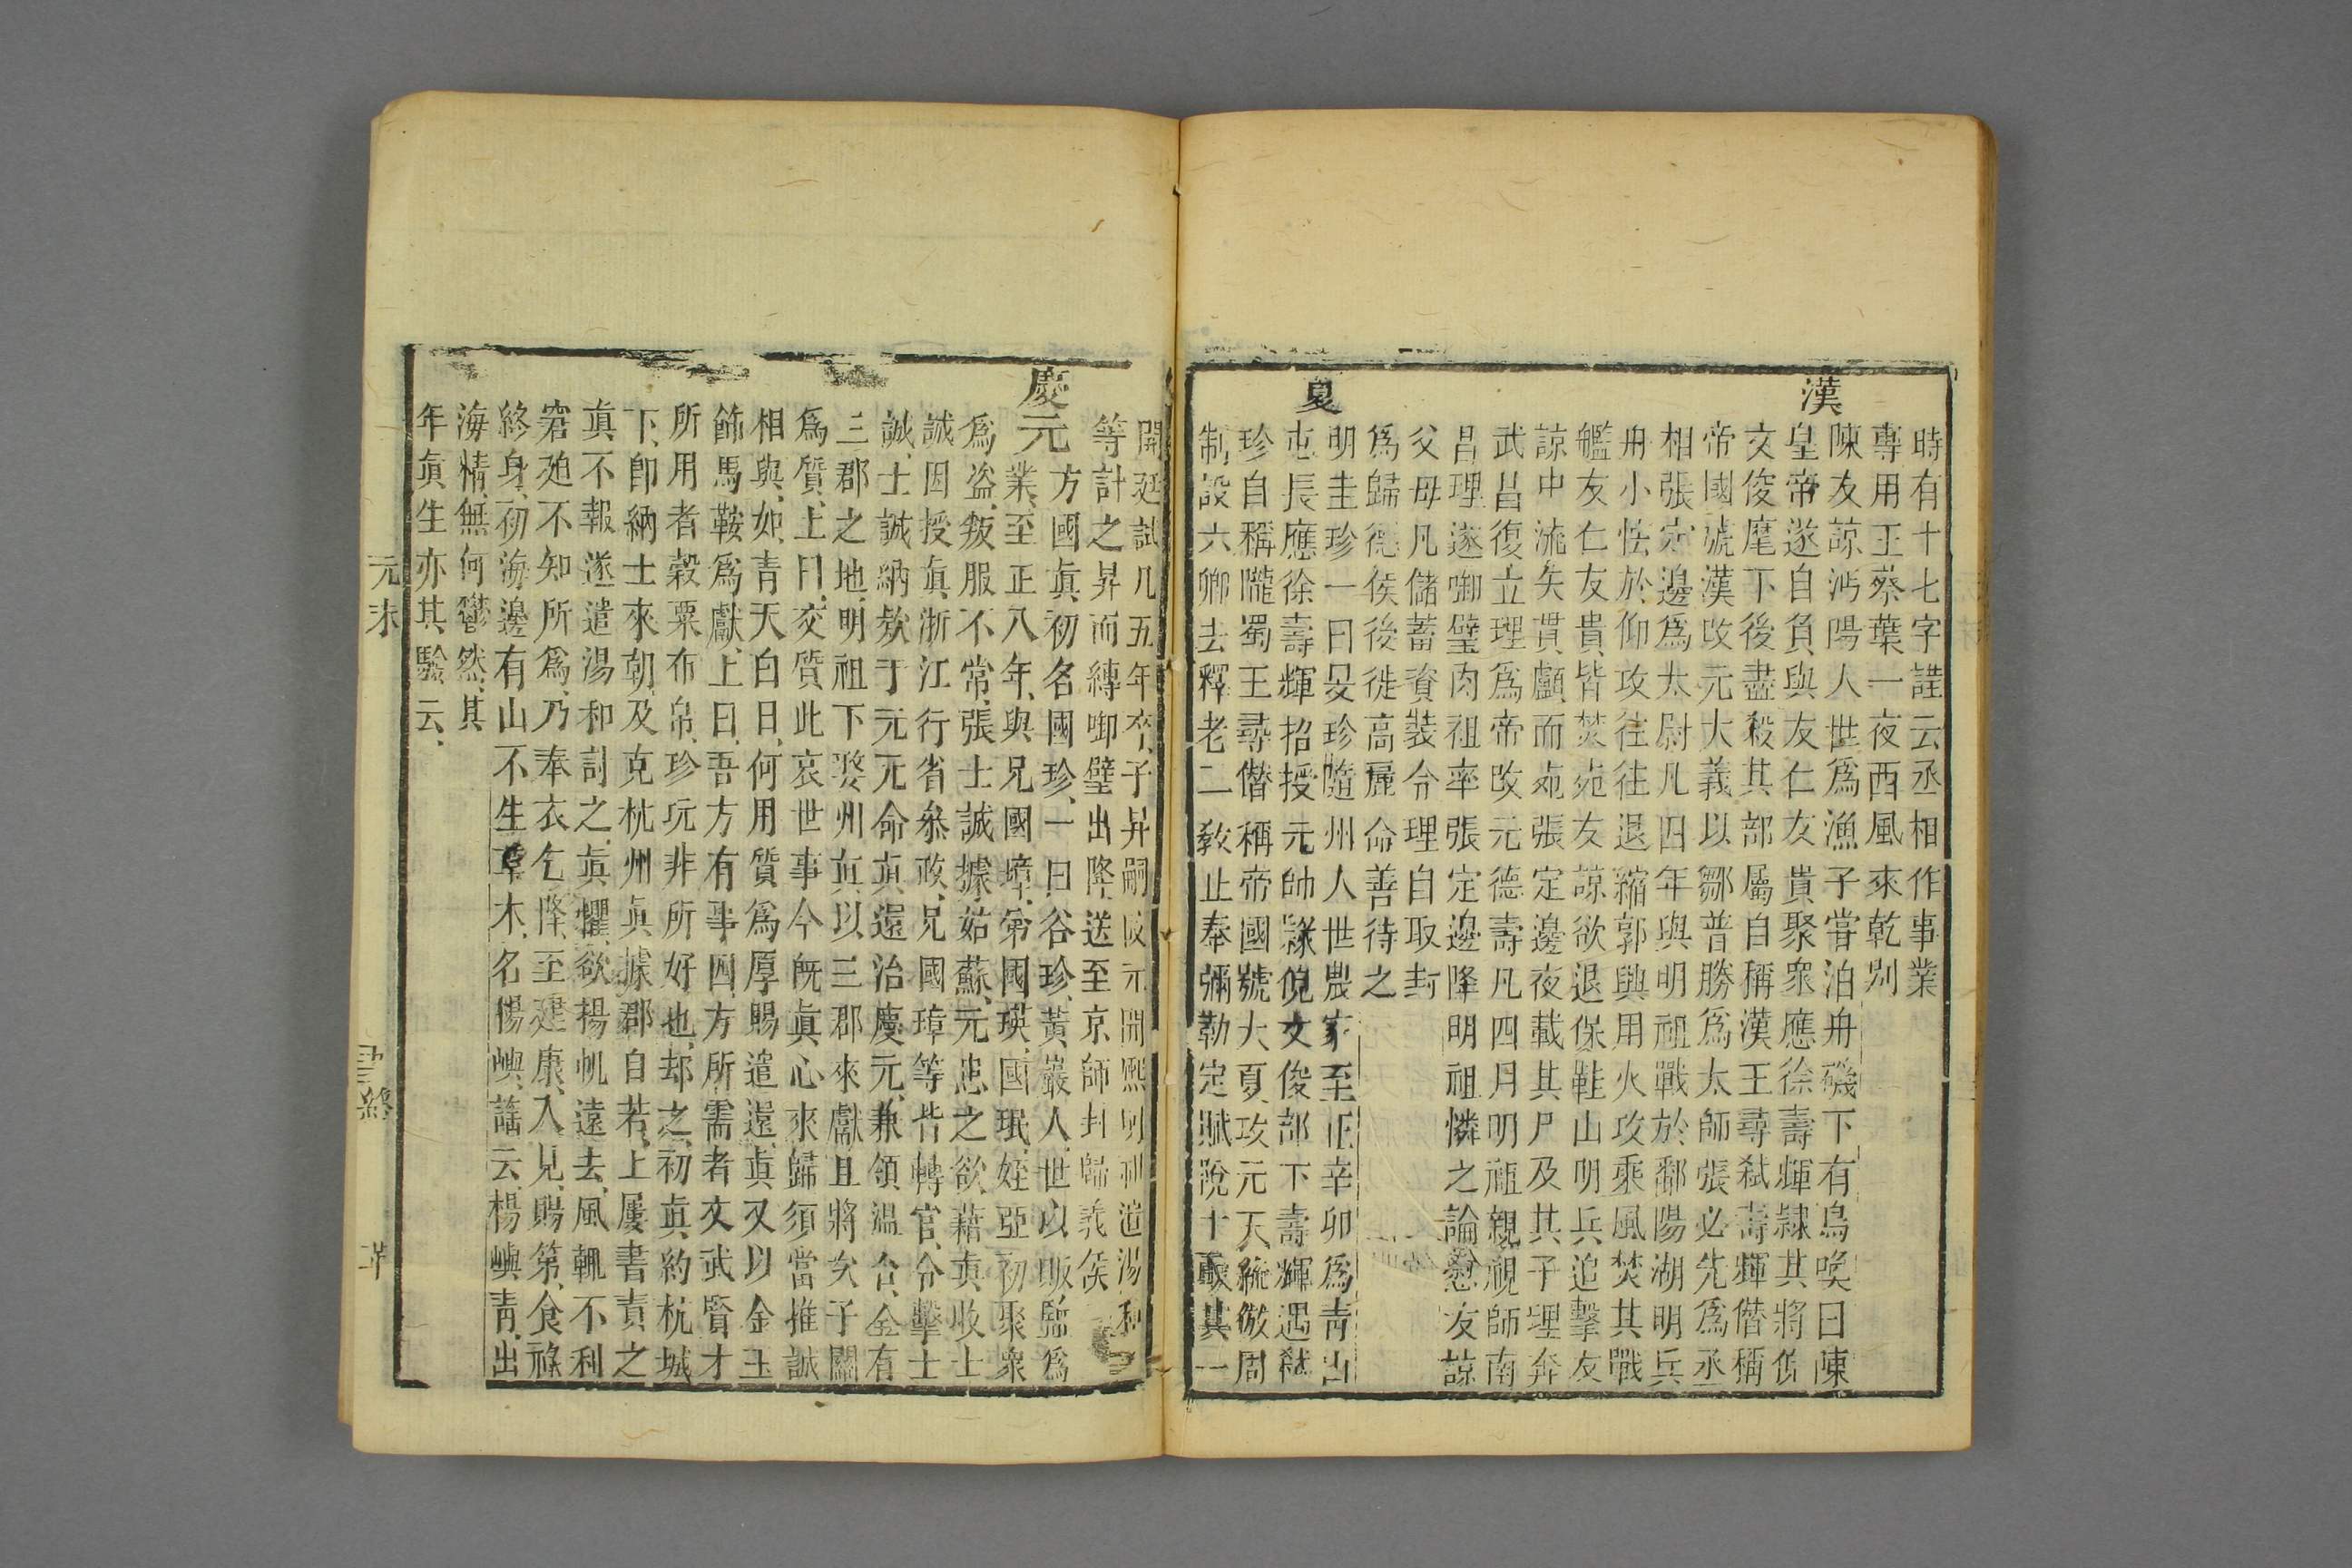 時有十七字謠云丞相作事業
專用王蔡葉一夜西風來乾別
漢
陳友諒沔陽人世爲漁子嘗泊舟磯下有烏喚曰陳
皇帝遂自負與友仁友貴聚衆應徐壽輝隷其將倪
文俊麾下後盡殺其部屬自稱漢王尋弑壽輝僭稱
帝國號漢改元大義以鄒普勝爲太師張必先爲丞
相張定邊爲太尉凡四年與明祖戰於鄱陽湖明兵
舟小怯於仰攻往往退縮郭興用火攻乘風焚其戰
艦友仁友貴皆焚死友諒欲退保鞋山明兵追擊友
諒中流矢貫顱而死張定邊夜載其尸及其子理奔
武昌復立理爲帝改元德壽凡四月明祖親視師南
昌理遂啣璧肉袒率張定邊降明祖憐之論慰友諒
父母凡儲蓄資裝令理自取封
爲歸德侯後徙高麗命善待之
夏
明圭珍一曰旻珍隨州人世農家至正辛卯爲靑山
屯長應徐壽輝招授元帥隷倪文俊部下壽輝遇弑
珍自稱隴蜀王尋僭稱帝國號大夏改元天統倣周
制設六卿去釋老二敎止奉彌勒定賦稅十取其一
開廷試凡五年卒子昇嗣改元開熙明祖遣湯和
等討之昇面縛啣璧出降送至京師封歸義侯
慶元
方國眞初名國珍一曰谷珍黃巖人世以販鹽爲
業至正八年與兄國璋弟國瑛國珉姪亞初聚衆
爲盜叛服不常張士誠據姑蘇元患之欲藉眞收士
誠因授眞浙江行省叅政兄國璋等皆轉官令擊士
誠士誠納欵于元元命眞還治慶元兼領溫台全有
三郡之地明祖下婺州眞以三郡來獻且將次子關
爲質上曰交質此哀世事今旣眞心來歸須當推誠
相與如靑天白日何用質爲厚賜遣還眞又以金玉
飾馬鞍爲獻上曰吾方有事四方所需者文武賢才
所用者穀粟布帛珍玩非所好也却之初眞約杭城
下卽納土來朝及克杭州眞據郡自若上屢書責之
眞不報遂遣湯和討之眞懼欲揚帆遠去風輒不利
窘廹不知所爲乃奉衣乞降至建康入見賜第食祿
終身初海邊有山不生草木名楊嶼謡云楊嶼靑出
海情無何鬱然其
年眞生亦其驗云
元末